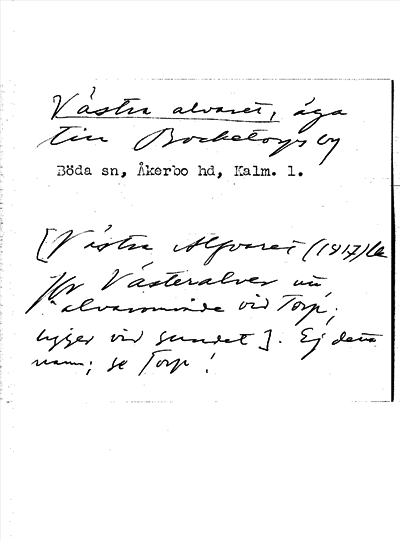 Västra alvaret, äga
till Bocketorps by
Böda sn, Åkerbo hd, Kalm. l.
[Västra Alfvaret (1817)
Jfr Västeralver nu
alvarområde vid Torp,
ligger vid sundet]. Ej detta
namn; se Torp!